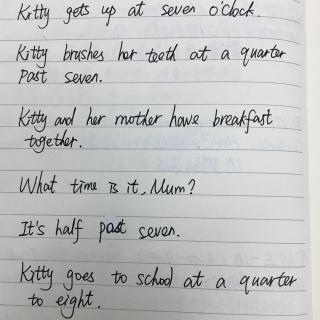 Kitty gets up at seven o'clock.
Kitty brushes her teeth at a quarter
past seven.
Kitty and her mother have breakfast
together.
What time is it, Mum?
It's half past seven.
Kitty goes to school at a quarter
to eight.